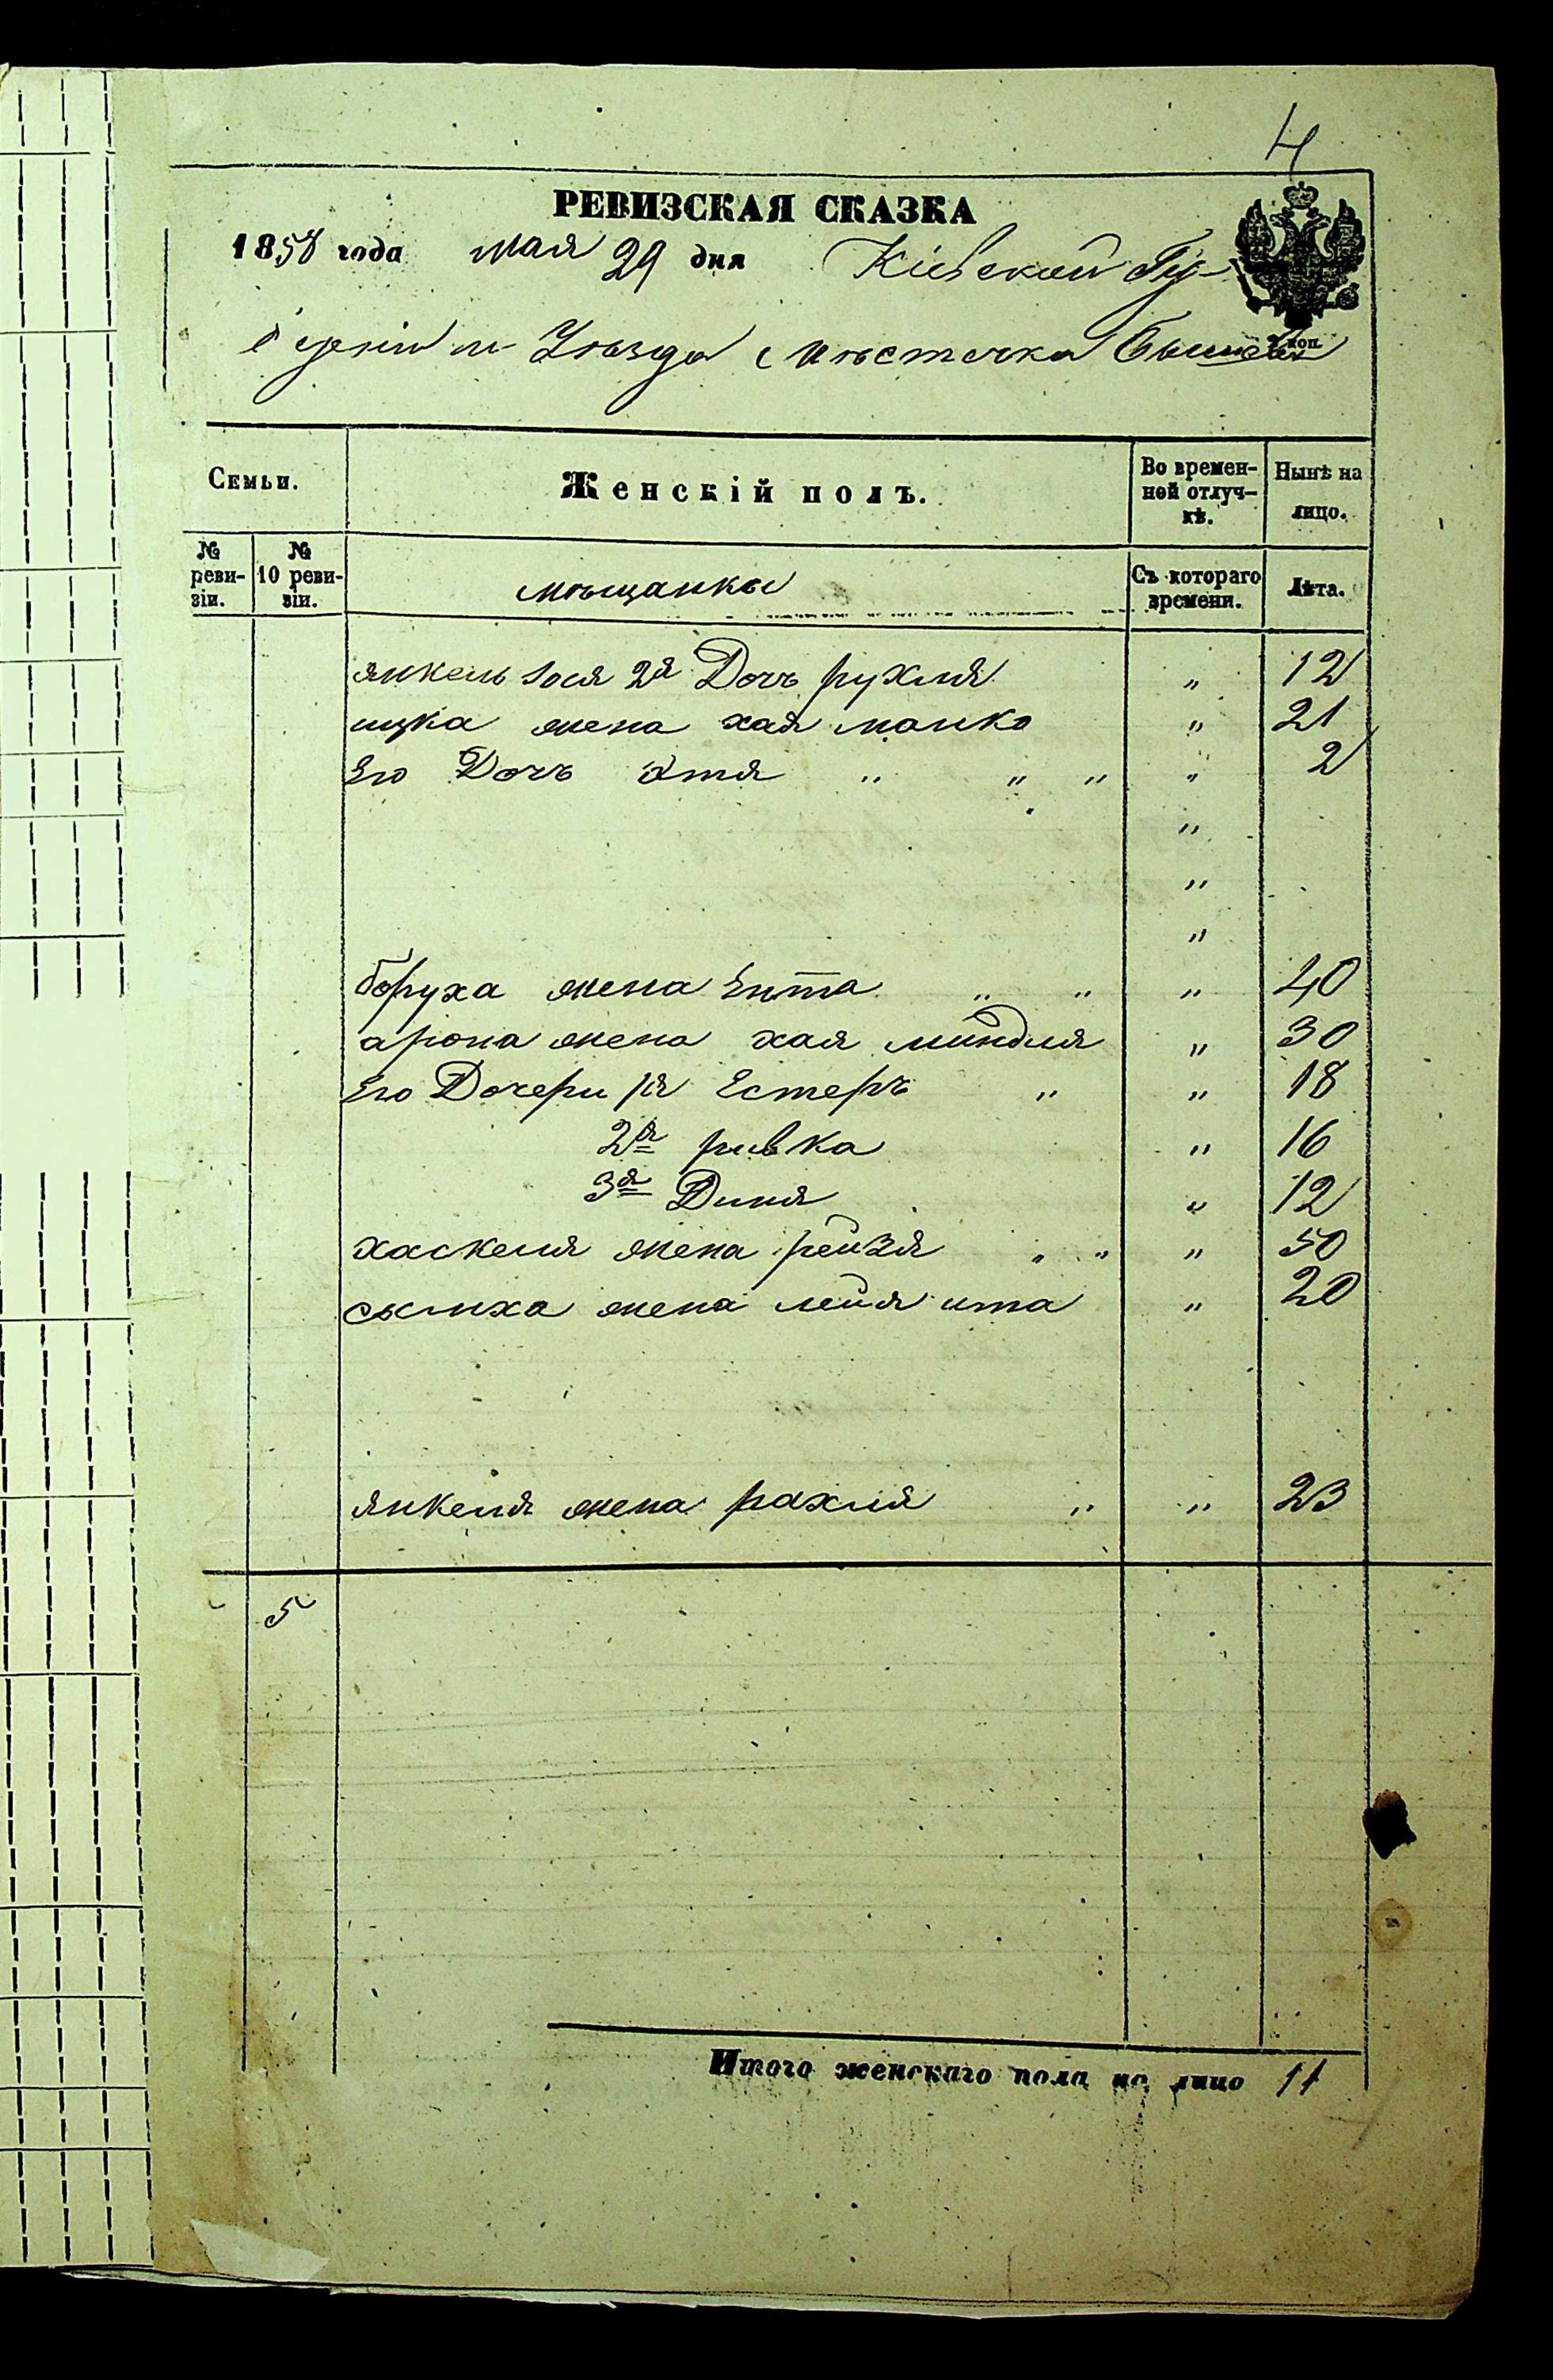 4
РЕВИЗСКАЯ СКАЗКА
1858 года мая 29 дня Кіевской Гу-
берніи и Уѣзда мѣстечка Бышева
коп.
Семьи.
Женскій полъ.
Во времен-
ной отлуч-
кѣ.
Нынѣ на
лицо.
№
реви-
зіи.
№
10 реви-
зіи.
мѣщанки
Съ котораго
времени.
Лѣта.
янкель 2я Дочь рухля " 12
ицка жена хая манка " 21
Его Дочь " " " " 2
"
"
"
боруха жена Ента " " " 40
арона жена хая миндля " 30
Его Дочери 1я Естеръ " " 18
2я ривка " 16
3я Диня " 12
хаскеля жена рейзя " " " 50
сымха жена лейя ита " 20
янкеля жена рахля " " 23
5
Итого женскаго пола на лицо 11